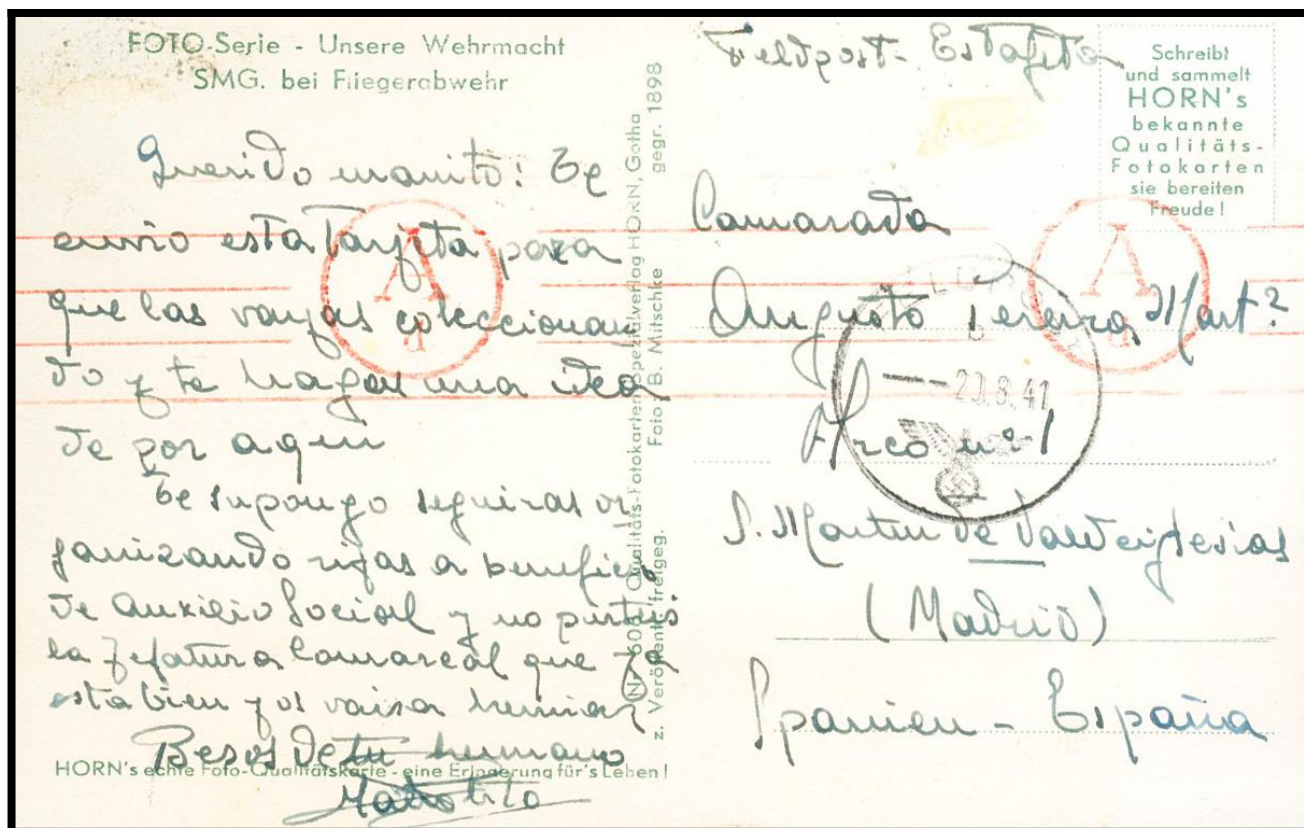 FOTO-Serie - Unsere Wehrmacht
SMG. bei Fliegerabwehr
Querido manito: Te
envio esta Tarjeta para
que las vayas coleccionan
do y te hagas una idea
de por aqui
Te supongo seguiras or
ganizando rifas a beneficio
de Auxilio Social y no
la Jefatura Comarcal que ya
esta bien y os vais a herniar
Besos de tu hermano
HORN's echte Foto-Qualitätskarte - eine Erinnerung für's Leben!
Qualitäts-Fotokarten-Spezialverlag HORN, Gotha
gegr. 1898
z. Veröffentl. freigeg.
Foto B. Mitschke
Feldpost- Estafeta
Schreibt
und sammelt
HORN's
bekannte
Qualitäts-
Fotokarten
sie bereiten
Freude!
Camarada
Augusto Mart?
Arco nº 1
S. Martin de Valdeiglesias
(Madrid)
Spanien - España
A
d
A
d
FELDPOST
b
8.41